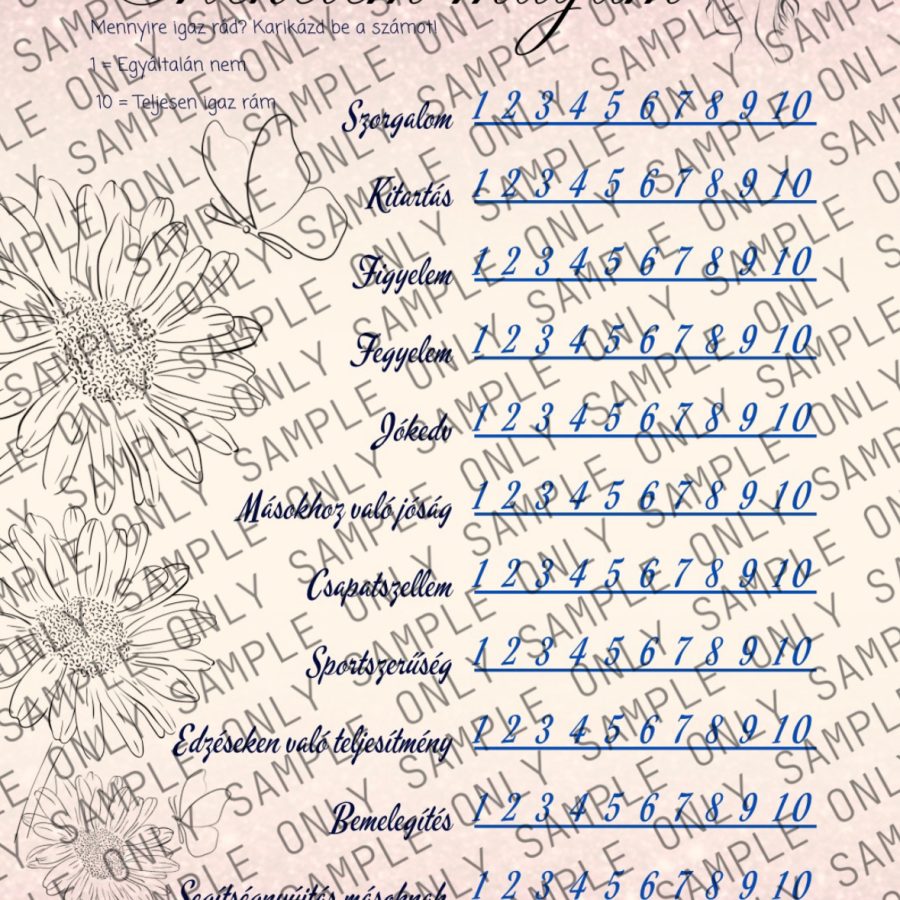 Mennyire igaz rád? Karikázd be a számot!
1 = Egyáltalán nem
10 = Teljesen igaz rám
Szorgalom 1 2 3 4 5 6 7 8 9 10
Kitartás 1 2 3 4 5 6 7 8 9 10
Figyelem 1 2 3 4 5 6 7 8 9 10
Fegyelem 1 2 3 4 5 6 7 8 9 10
Jókedv 1 2 3 4 5 6 7 8 9 10
Másokhoz való jóság 1 2 3 4 5 6 7 8 9 10
Csapatszellem 1 2 3 4 5 6 7 8 9 10
Sportszerűség 1 2 3 4 5 6 7 8 9 10
Edzéseken való teljesítmény 1 2 3 4 5 6 7 8 9 10
Bemelegítés 1 2 3 4 5 6 7 8 9 10
Segítségnyújtás másoknak 1 2 3 4 5 6 7 8 9 10
SAMPLE ONLY